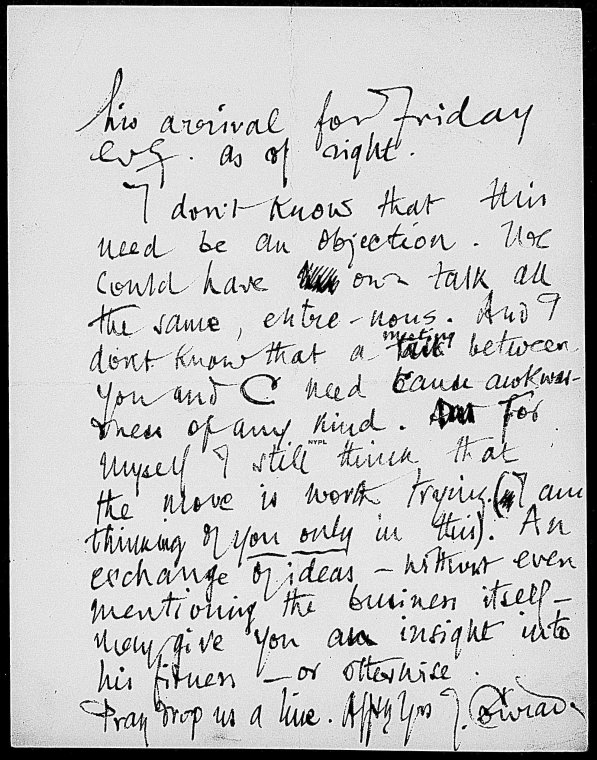 his arrival for Friday
evg. as of right.
I don't know that this
need be an objection. We
could have our talk all
the same, entre-nous. And I
don't know that a meeting between
you and C need cause awkwar-
dness of any kind. For
NYPL
myself I still think that
the move is worth trying. (I am
thinking of you only in this). An
exchange of ideas – without even
mentioning the business itself –
may give you an insight into
his fitness – or otherwise.
Pray drop us a line. Affly Yrs J. Conrad.